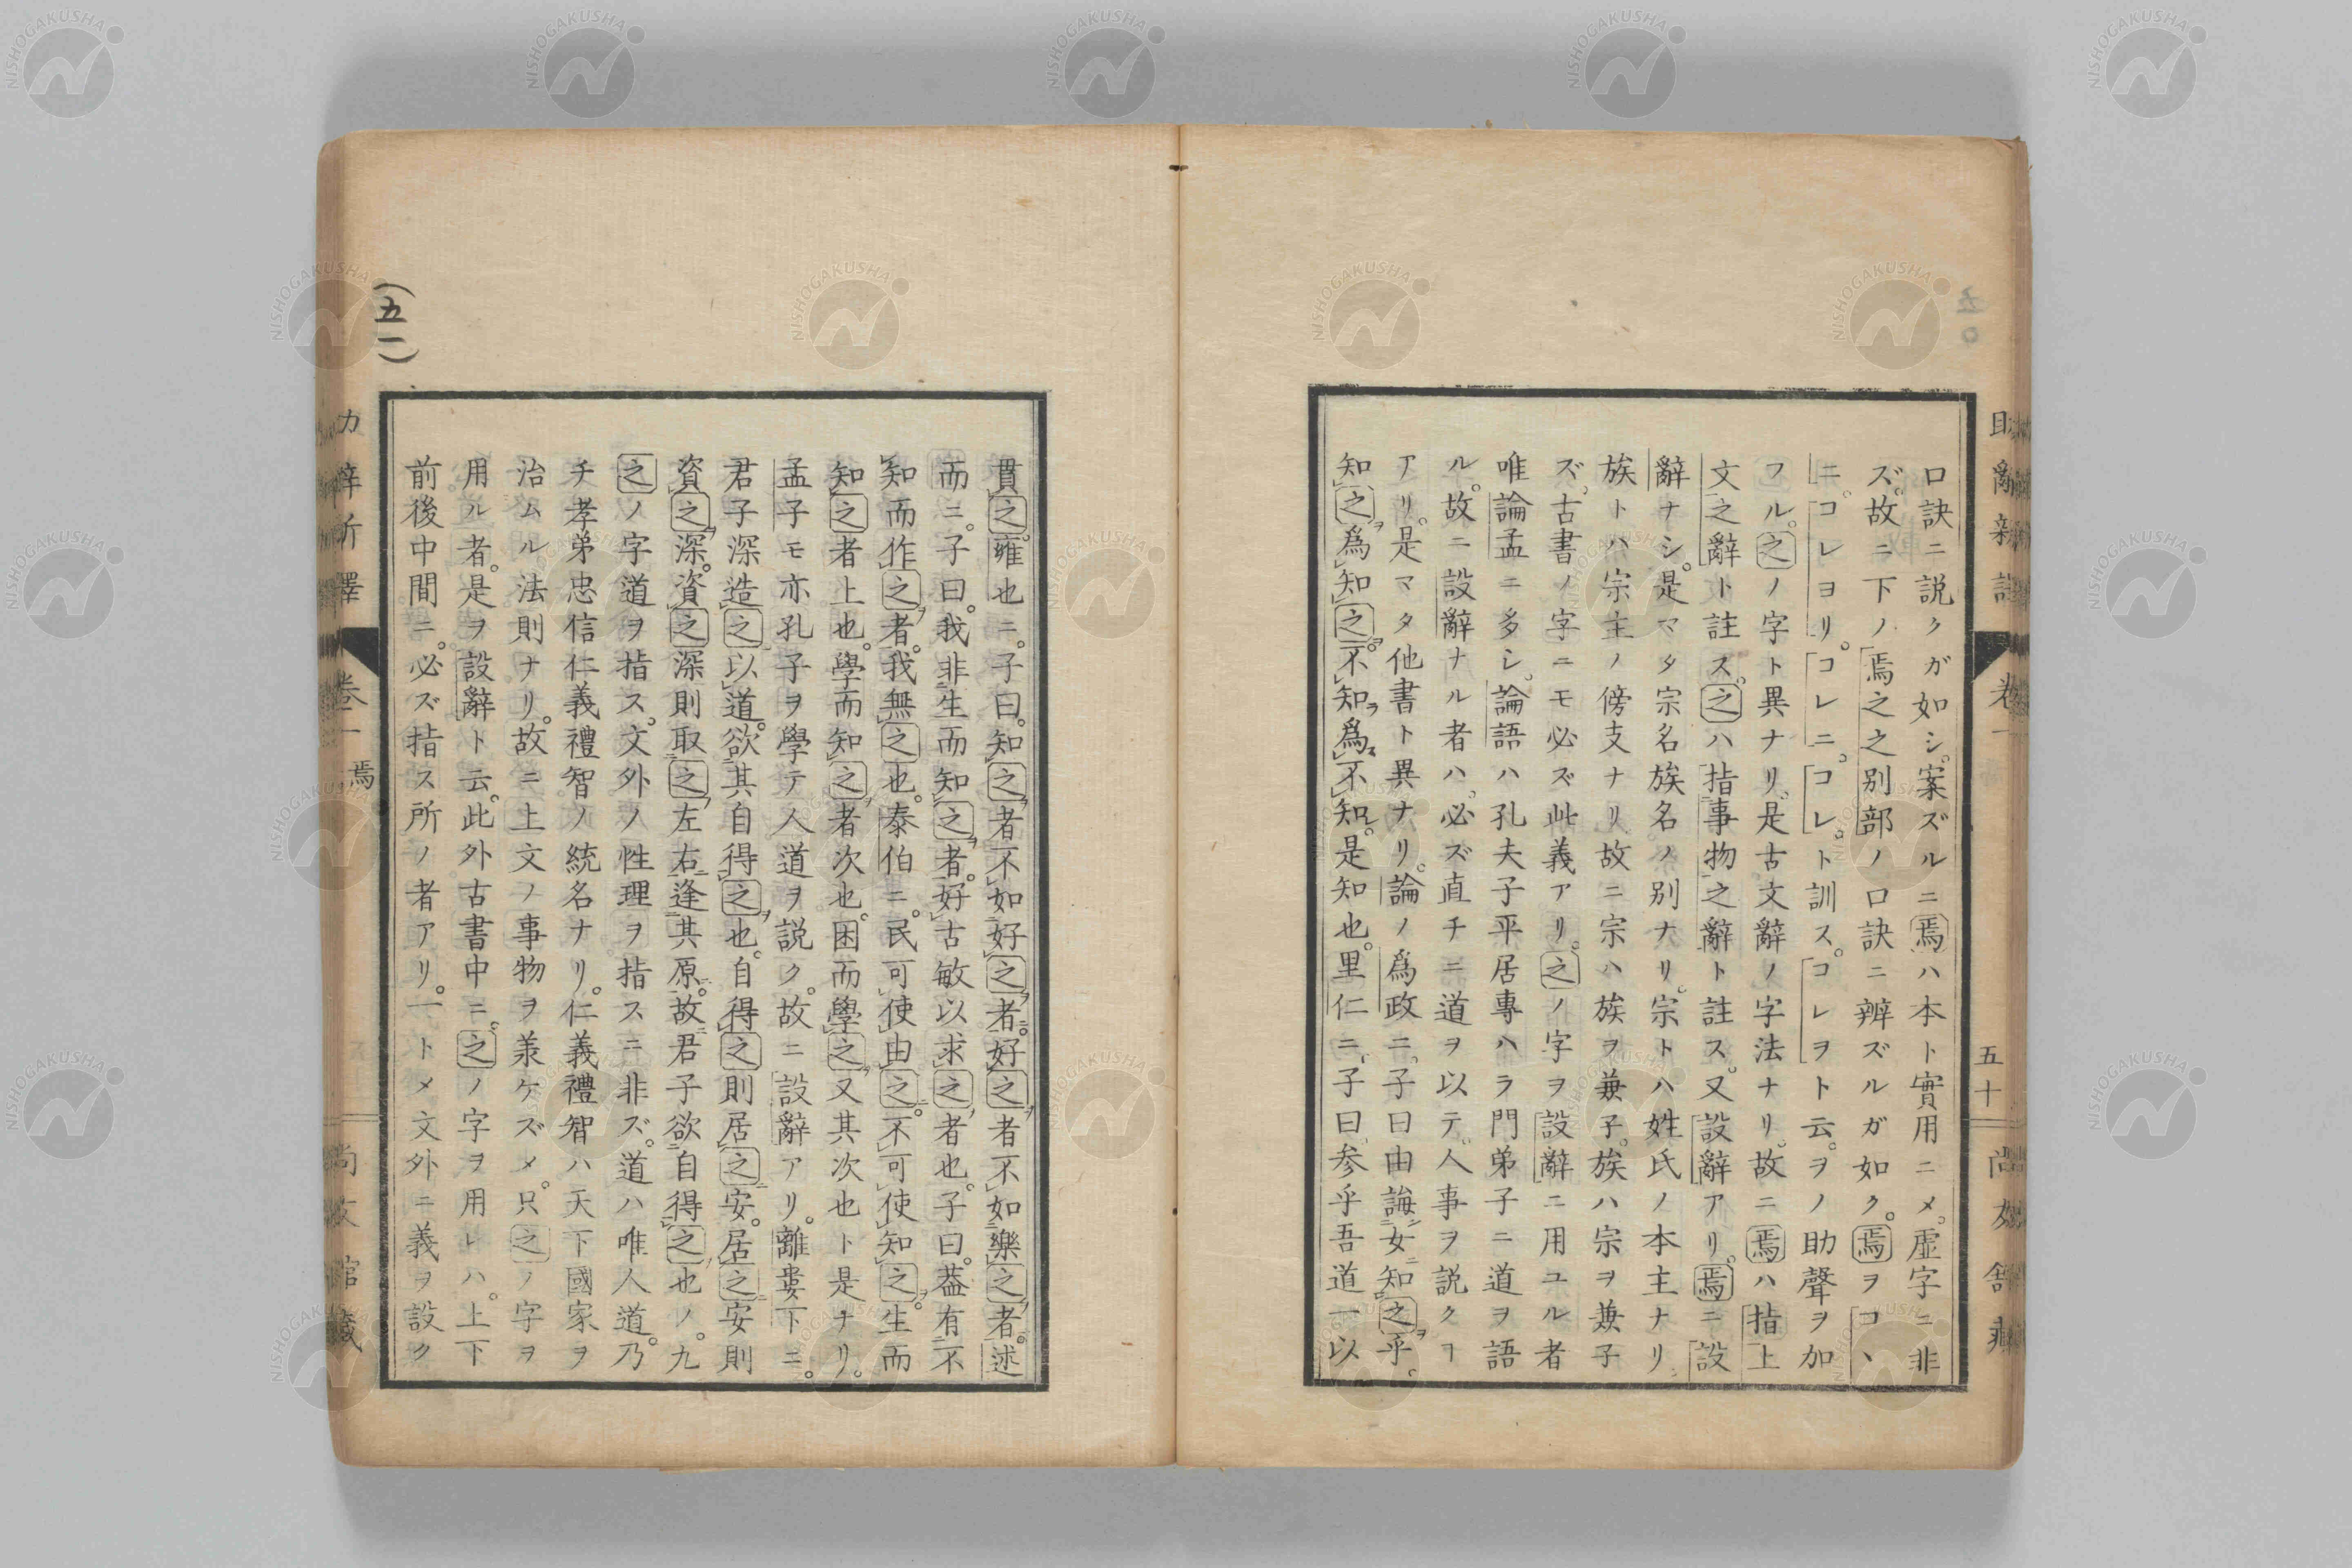 口訣ニ説クガ如シ。案ズルニ焉ハ本ト實用ニメ。虚字ニ非
ズ。故ニ下ノ焉之之別部ノ口訣ニ辨ズルガ如ク。焉ヲコヽ
ニ。コレヨリ。コレニ。コレ。ト訓ス。コレヲト云。ヲノ助聲ヲ加
フル。之ノ字ト異ナリ。是古文辭ノ字法ナリ。故ニ焉ハ指上
文之辭ト註ス。之ハ指事物之辭ト註ス。又設辭アリ。焉ニ設
辭ナシ。是マタ宗名族名ノ別ナリ。宗トハ姓氏ノ本主ナリ
族トハ宗主ノ傍支ナリ故ニ宗ハ族ヲ兼子。族ハ宗ヲ兼子
ズ。古書ノ字ニモ必ズ此義アリ。之ノ字ヲ設辭ニ用ユル者
唯論孟ニ多シ。論語ハ孔夫子平居專ハラ門弟子ニ道ヲ語
ル。故ニ設辭ナル者ハ。必ズ直チニ道ヲ以テ。人事ヲ説クヿ
アリ。是マタ他書ト異ナリ。論ノ爲政ニ。子曰由誨女知之乎。
知之爲知之。不知爲不知。是知也。里仁ニ。子曰参乎吾道一以
貫之。雍也ニ。子曰。知之者不如好之者。好之者不如樂之者。述
而ニ。子曰。我非生而知之者。好古敏以求之者也。子曰。葢有不
知而作之者。我無之也。泰伯ニ。民可使由之。不可使知之。生而
知之者上也。學而知之者次也。困而學之又其次也ト是ナリ。
孟子モ亦孔子ヲ學テ人道ヲ説ク。故ニ設辭アリ。離婁下ニ。
君子深造之以道。欲其自得之也。自得之則居之安。居之安則
資之深。資之深則取之左右逢其原。故君子欲自得之也ノ。九
之ノ字道ヲ指ス。文外ノ性理ヲ指スニ非ズ。道ハ唯人道。乃
チ孝弟忠信仁義禮智ノ統名ナリ。仁義禮智ハ天下國家ヲ
治ムル法則ナリ。故ニ上文ノ事物ヲ羕ケズメ。只之ノ字ヲ
用ル者。是ヲ設辭ト云。此外古書中ニ。之ノ字ヲ用レハ。上下
前後中間ニ。必ズ指ス所ノ者アリ。一トメ文外ニ義ヲ設ク
卷一
焉
五十
(五一)
五〇
NISHOGAKUSHA